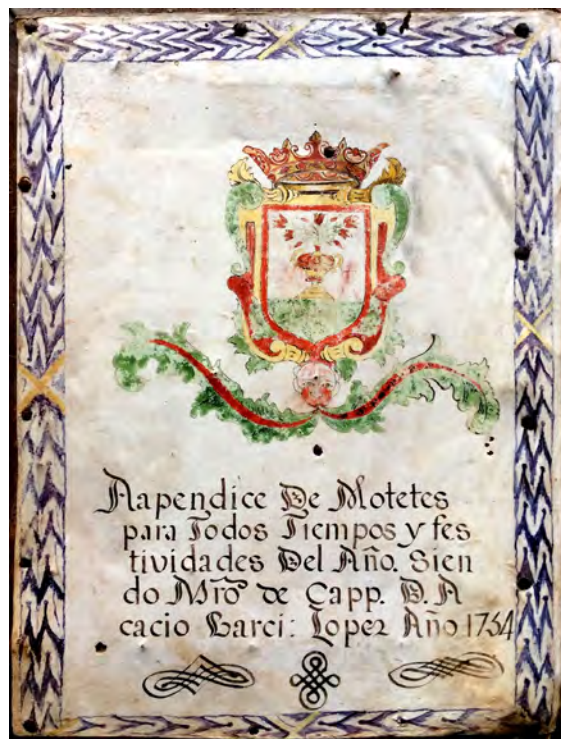 Aapendice De Motetes
para Todos Tiempos y fes
tividades Del Año. Sien
do Mrõ de Capp. D. A
cacio Garci: Lopez Año 1734